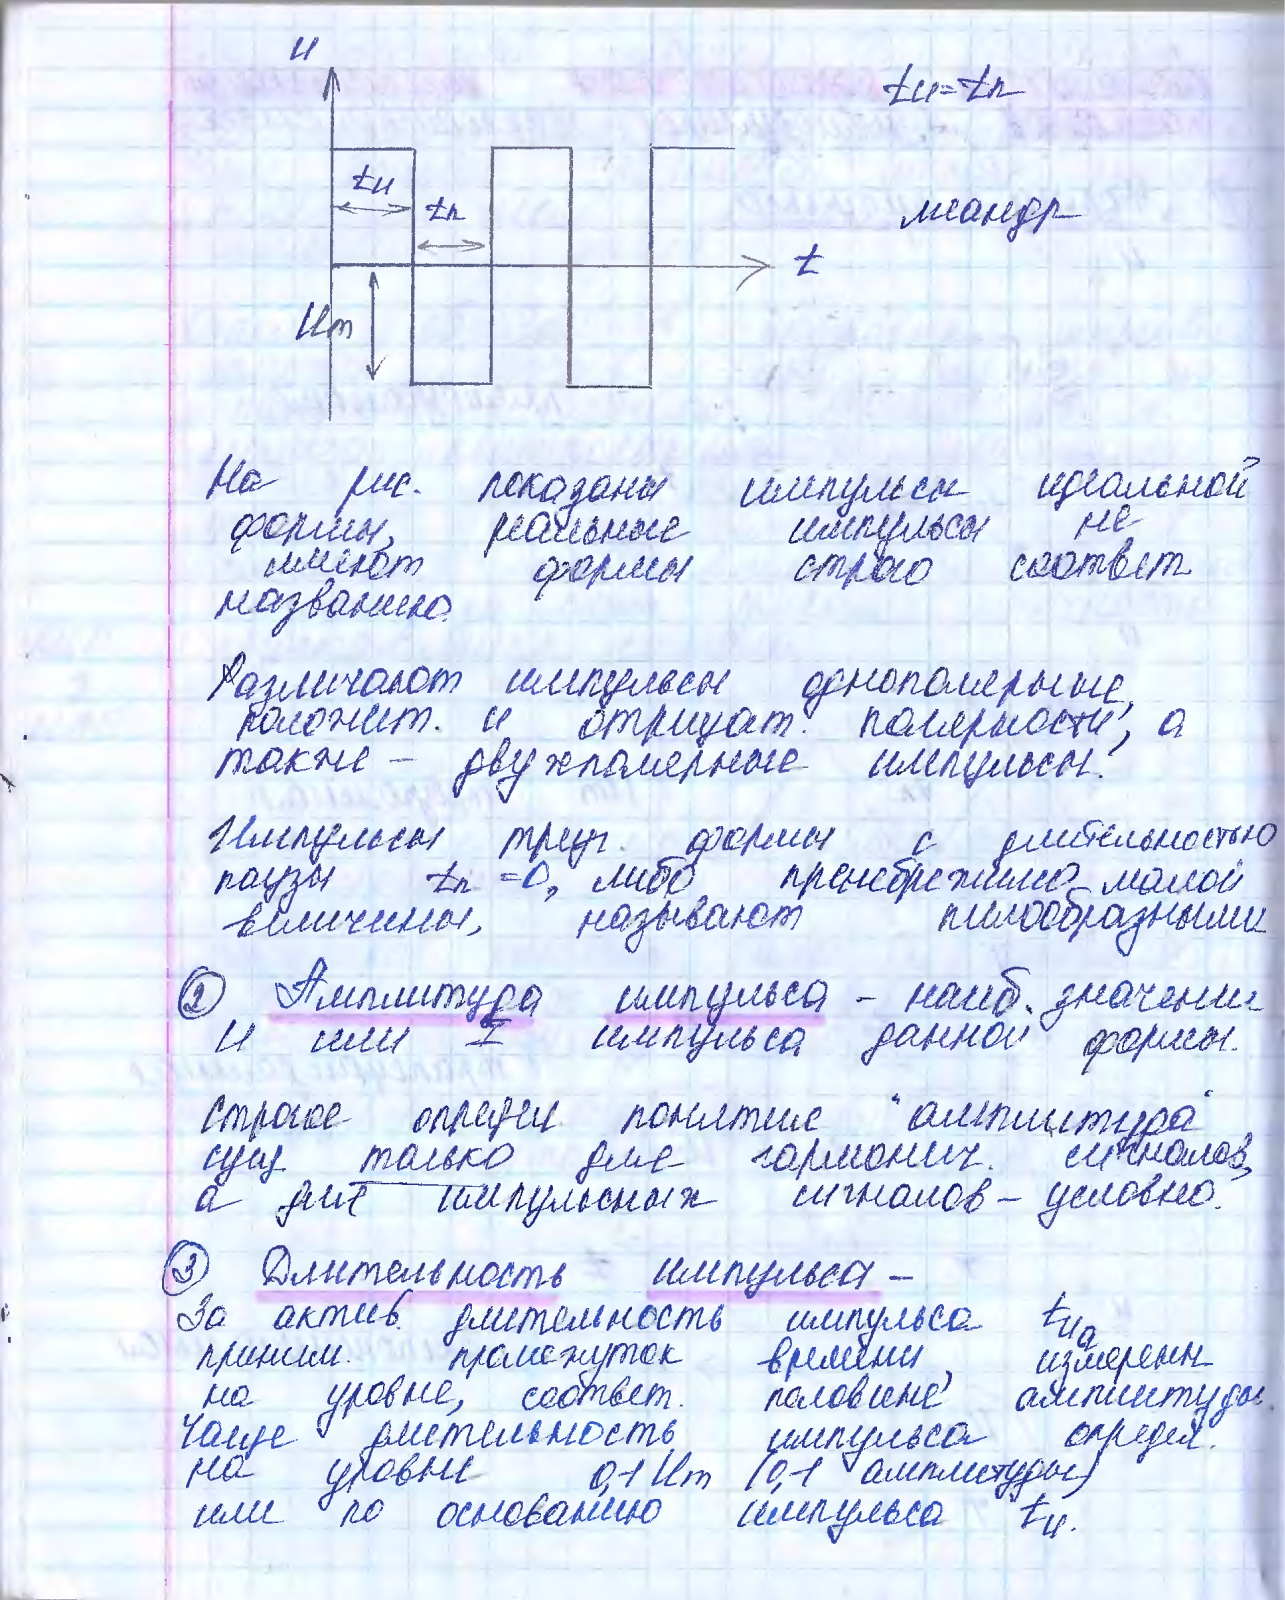 u
tи = tп
tи
tп
меандр
t
Um
На рис. показаны импульсы идеальной
формы, реальные импульсы не
имеют формы строго соответ
названию.
Различают импульсы однополярные,
положит. и отрицат. полярности, а
также – двухполярные импульсы.
Импульсы треуг. формы с длительностью
паузы tп = 0, либо пренебрежимо малой
величины, называют пилообразными
2 Амплитуда импульса – наиб. значение
U или I импульса данной формы.
Строгое определ понятие "амплитуда"
сущ только для гармонич. сигналов,
а для импульсных сигналов – условно.
3 Длительность импульса –
За актив. длительность импульса tиа
приним. промежуток времени, измеренн
на уровне, соответ. половине амплитуды.
Чаще длительность импульса определ.
на уровне 0,1 Um (0,1 амплитуды)
или по основанию импульса tи.